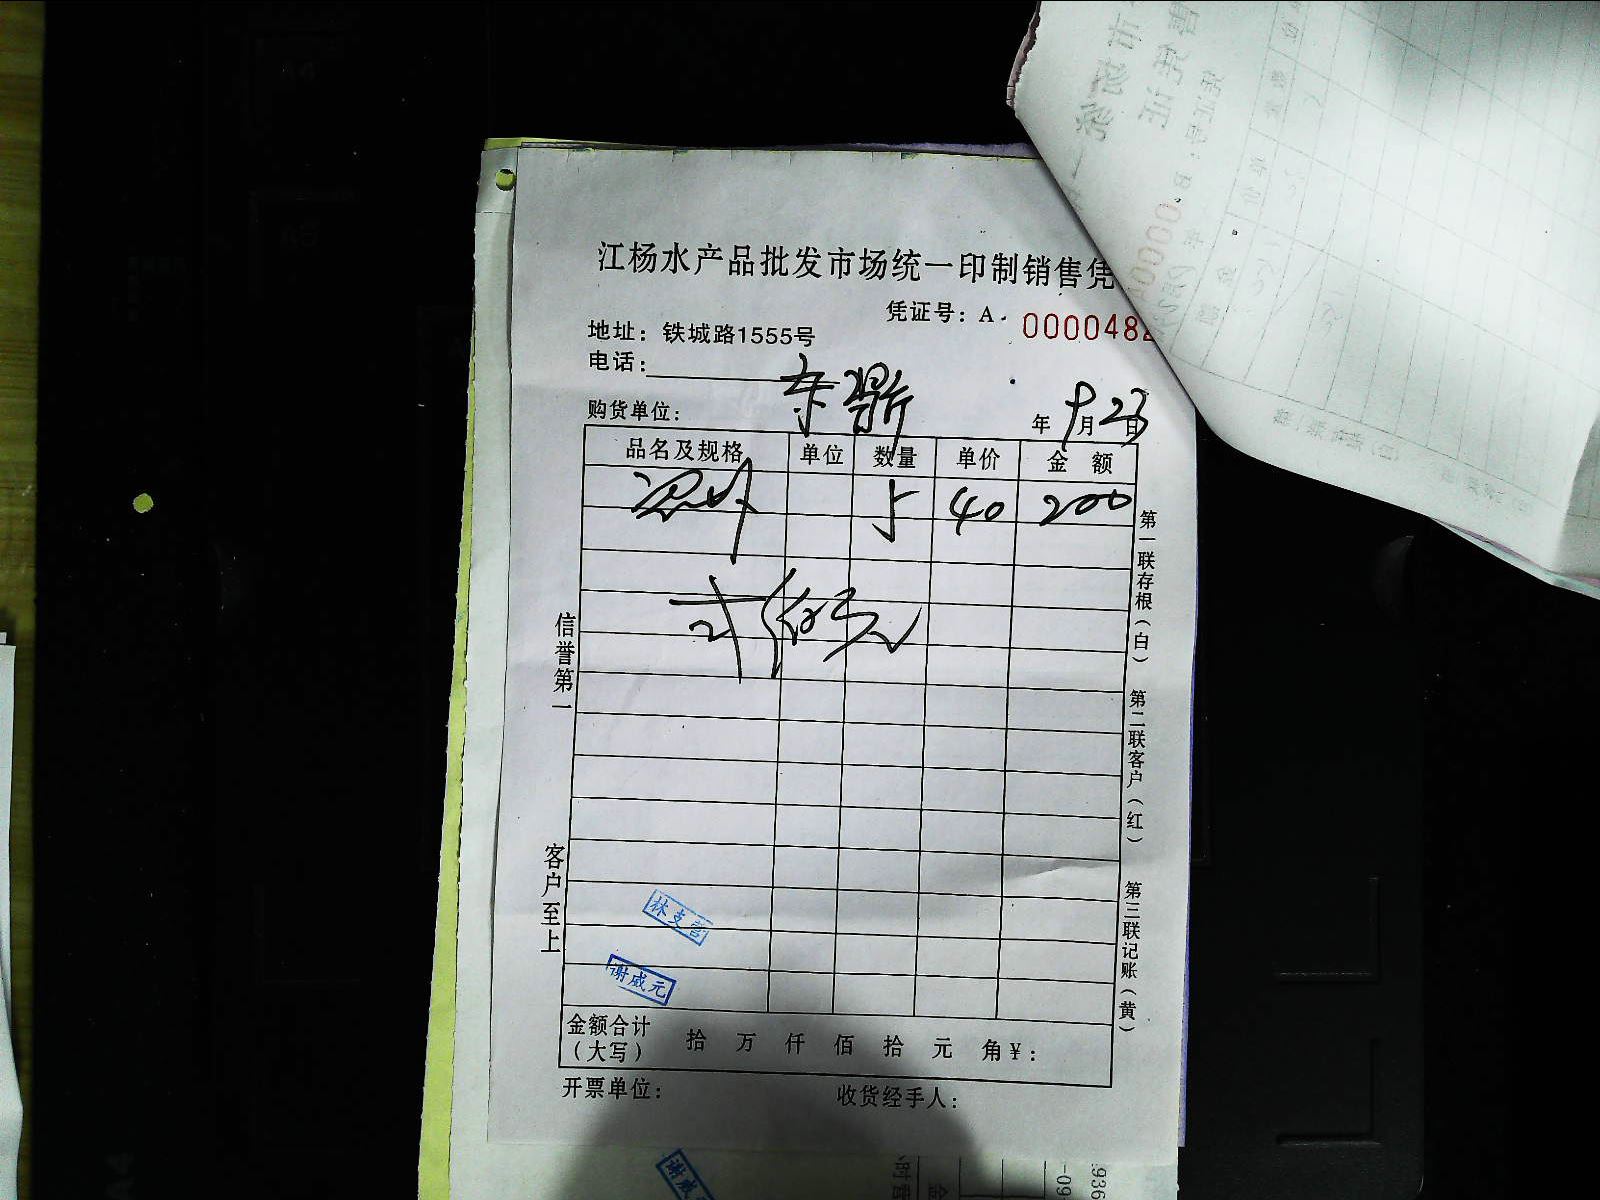 江杨水产品批发市场统一印制销售凭
凭证号：A. 0000482
地址：铁城路1555号
电话：
购货单位： 东鼎 年 9月23日
品名及规格 单位 数量 单价 金 额
5 40 200
弍佰元
信誉第一
客户至上
第一联存根（白） 第二联客户（红） 第三联记账（黄）
林支营
谢威元
金额合计（大写） 拾 万 仟 佰 拾 元 角 ¥：
开票单位： 收货经手人：
谢威